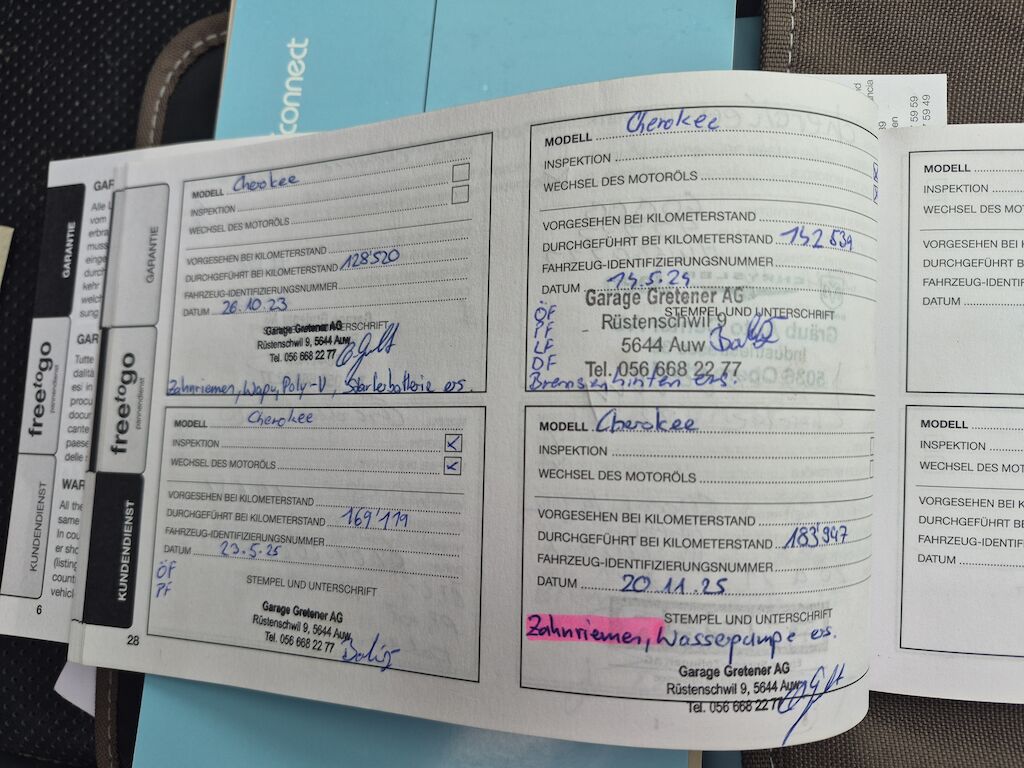 connect
GARANTIE
freetogo
pannendienst
KUNDENDIENST
6
GARANTIE
freetogo
pannendienst
KUNDENDIENST
28
MODELL Cherokee
INSPEKTION
WECHSEL DES MOTORÖLS
VORGESEHEN BEI KILOMETERSTAND
DURCHGEFÜHRT BEI KILOMETERSTAND 128'520
FAHRZEUG-IDENTIFIZIERUNGSNUMMER
DATUM 26.10.23
STEMPEL UND UNTERSCHRIFT
Garage Gretener AG
Rüstenschwil 9, 5644 Auw
Tel. 056 668 22 77
Zahnriemen, Wapu, Poly-V, Starterbatterie ers.
MODELL Cherokee
INSPEKTION
WECHSEL DES MOTORÖLS
VORGESEHEN BEI KILOMETERSTAND
DURCHGEFÜHRT BEI KILOMETERSTAND 169'119
FAHRZEUG-IDENTIFIZIERUNGSNUMMER
DATUM 23.5.25
ÖF
PF
STEMPEL UND UNTERSCHRIFT
Garage Gretener AG
Rüstenschwil 9, 5644 Auw
Tel. 056 668 22 77
MODELL Cherokee
INSPEKTION
WECHSEL DES MOTORÖLS
VORGESEHEN BEI KILOMETERSTAND
DURCHGEFÜHRT BEI KILOMETERSTAND 142534
FAHRZEUG-IDENTIFIZIERUNGSNUMMER
DATUM 14.5.24
STEMPEL UND UNTERSCHRIFT
Garage Gretener AG
Rüstenschwil 9
5644 Auw
Tel. 056 668 22 77
ÖF
PF
LF
DF
Bremsen hinten ers.
MODELL Cherokee
INSPEKTION
WECHSEL DES MOTORÖLS
VORGESEHEN BEI KILOMETERSTAND
DURCHGEFÜHRT BEI KILOMETERSTAND 183'947
FAHRZEUG-IDENTIFIZIERUNGSNUMMER
DATUM 20.11.25
STEMPEL UND UNTERSCHRIFT
Zahnriemen, Wasserpumpe ers.
Garage Gretener AG
Rüstenschwil 9, 5644 Auw
Tel. 056 668 22 77
MODELL
INSPEKTION
WECHSEL DES MOTO
VORGESEHEN BEI K
DURCHGEFÜHRT BE
FAHRZEUG-IDENTIF
DATUM
MODELL
INSPEKTION
WECHSEL DES MOT
VORGESEHEN BEI K
DURCHGEFÜHRT BE
FAHRZEUG-IDENTIFI
DATUM